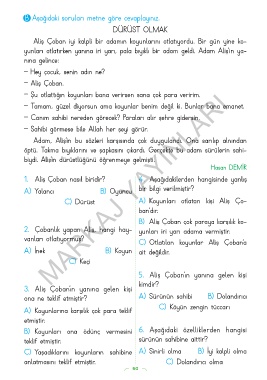 15 Aşağıdaki soruları metne göre cevaplayınız.
DÜRÜST OLMAK
Ali Çoban iyi kalpli bir adamın koyunlarını otlatıyordu. Bir gün yine ko-
yunları otlatırken yanına iri yarı, pala bıyıklı bir adam geldi. Adam Ali'nin ya-
nına gelince:
– Hey çocuk, senin adın ne?
– Ali Çoban.
– Şu otlattığın koyunları bana verirsen sana çok para veririm.
– Tamam, güzel diyorsun ama koyunlar benim değil ki. Bunlar bana emanet.
– Canım sahibi nereden görecek? Paraları alır şehre gidersin.
– Sahibi görmese bile Allah her şeyi görür.
Adam, Ali'nin bu sözleri karşısında çok duygulandı. Onu sarılıp alnından
öptü. Takma bıyıklarını ve şapkasını çıkardı. Gerçekte bu adam sürülerin sahi-
biydi. Ali'nin dürüstlüğünü öğrenmeye gelmişti.
Hasan DEMİR
1. Ali Çoban nasıl biridir?
A) Yalancı B) Oyuncu
C) Dürüst
2. Çobanlık yapan Ali, hangi hay-
vanları otlatıyormuş?
A) İnek B) Koyun
C) Keçi
3. Ali Çoban'in yanına gelen kişi
ona ne teklif etmiştir?
A) Koyunlarına karşılık çok para teklif
etmiştir.
B) Koyunları ona ödünç vermesini
teklif etmiştir.
C) Yaşadıklarını koyunların sahibine
anlatmasını teklif etmiştir.
4. Aşağıdakilerden hangisinde yanlış
bir bilgi verilmiştir?
A) Koyunları otlatan kişi Ali Ço-
ban'dır.
B) Ali Çoban çok paraya karşılık ko-
yunları iri yarı adama vermiştir.
C) Otlatılan koyunlar Ali Çoban'a
ait değildir.
5. Ali Çoban'in yanına gelen kişi
kimdir?
A) Sürünün sahibi B) Dolandırıcı
C) Köyün zengin tüccarı
6. Aşağıdaki özelliklerden hangisi
sürünün sahibine aittir?
A) Sinirli olma B) İyi kalpli olma
C) Dolandırıcı olma
MARKAJ YAYINLARI